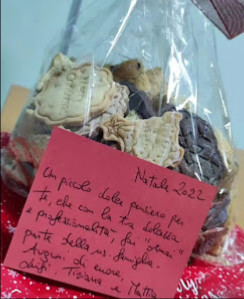 Natale 2022
Un piccolo dolce pensiero per
te, che con la tua dolcezza
e professionalità, fai "ormai"
parte della ns. famiglia.
Auguri di cuore,
Tiziana e Mattia